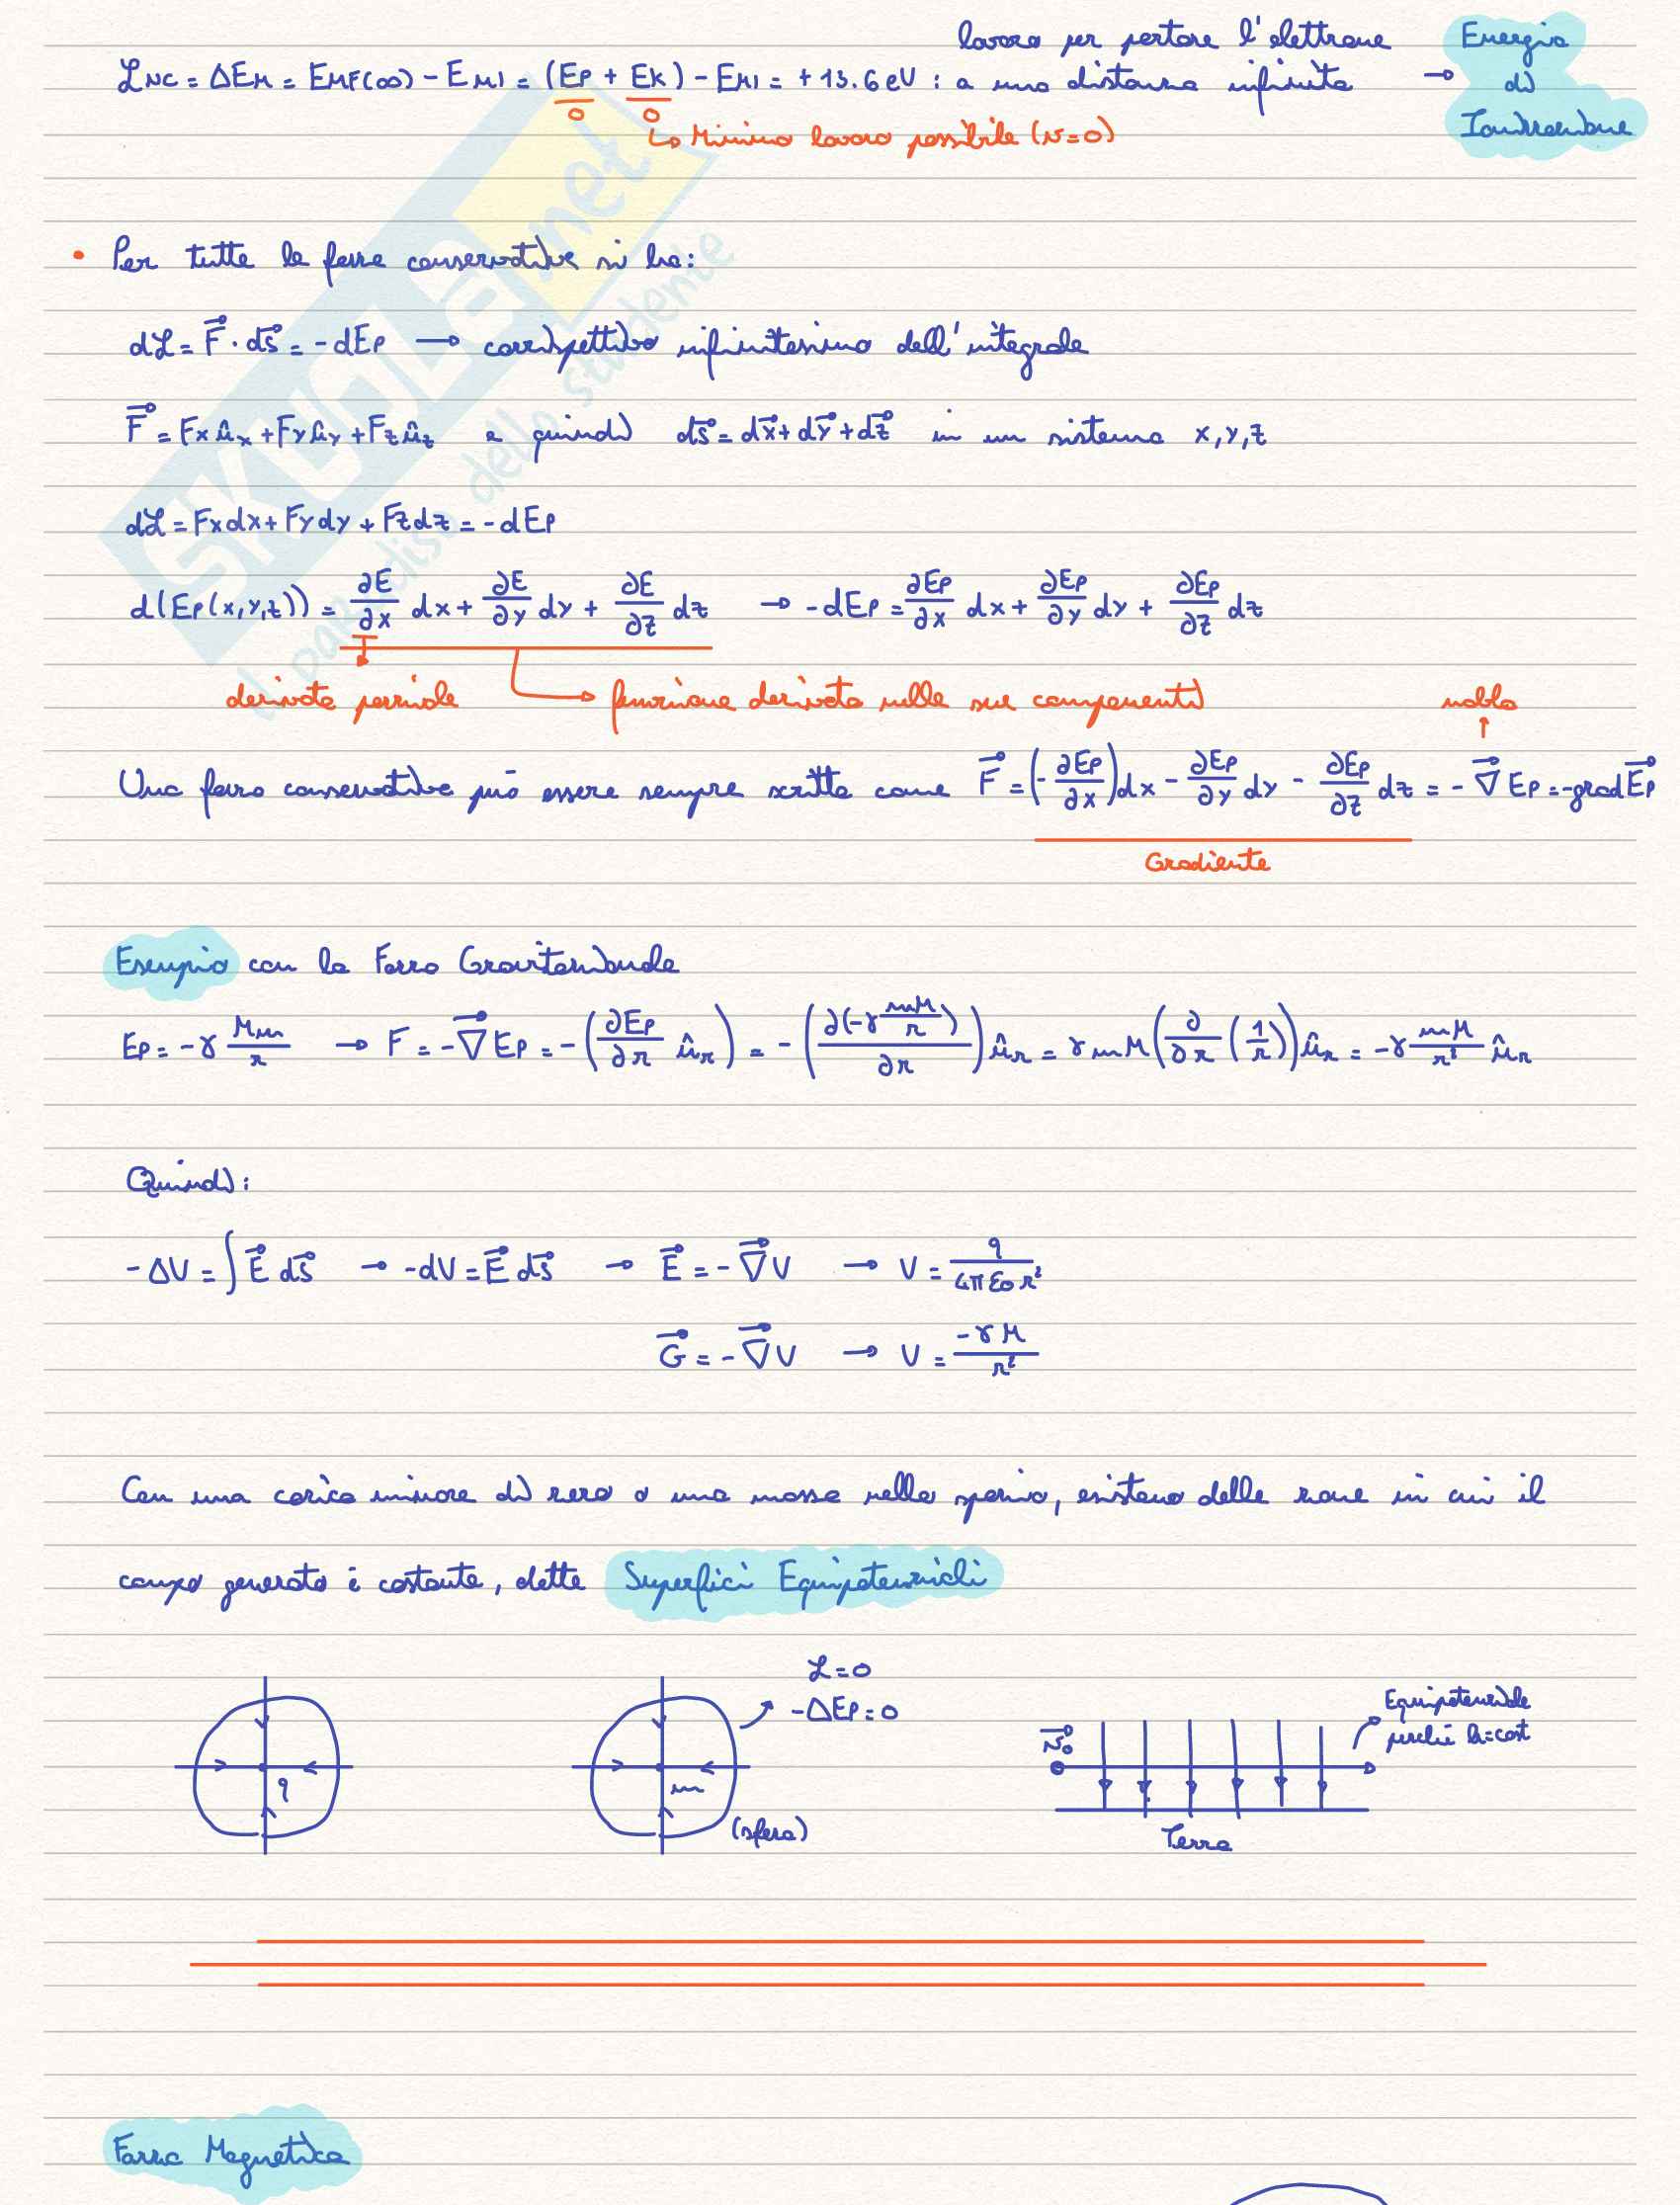 lavoro per portare l'elettrone Energia
L NC = ΔEM = EMF(∞) - EMI = (EP + EK) - EMI = +13.6eV : a una distanza infinita → di
0 0 Ionizzazione
↳ Minimo lavoro possibile (v=0)
• Per tutte le forze conservative si ha:
dL = F⃗ · ds⃗ = -dEP → corrispettivo infinitesimo dell'integrale
F⃗ = Fx ûx + Fy ûy + Fz ûz e quindi ds⃗ = dx⃗ + dy⃗ + dz⃗ in un sistema x, y, z
dL = Fxdx + Fydy + Fzdz = -dEP
d(EP(x,y,z)) = ∂E/∂x dx + ∂E/∂y dy + ∂E/∂z dz → -dEP = ∂EP/∂x dx + ∂EP/∂y dy + ∂EP/∂z dz
derivata parziale → funzione derivata nelle sue componenti nabla
↑
Una forza conservativa può essere sempre scritta come F⃗ = (-∂EP/∂x)dx - ∂EP/∂y dy - ∂EP/∂z dz = -∇⃗ EP = -grad EP⃗
Gradiente
Esempio con la Forza Gravitazionale
EP = -γ Mm/r → F = -∇⃗ EP = -(∂EP/∂r ûr) = -(∂(-γ mM/r)/∂r) ûr = γmM(∂/∂r (1/r)) ûr = -γ mM/r² ûr
Quindi:
-ΔV = ∫ E⃗ ds⃗ → -dV = E⃗ ds⃗ → E⃗ = -∇⃗V → V = q/4πε0r²
G⃗ = -∇⃗V → V = -γM/r²
Con una carica minore di zero o una massa nello spazio, esistono delle zone in cui il
campo generato è costante, dette Superfici Equipotenziali
L = 0
-ΔEP = 0
Equipotenziale
perché h=cost
v⃗0
q
m
(sfera)
Terra
Forza Magnetica
SKUOLA.net
il paradiso dello studente